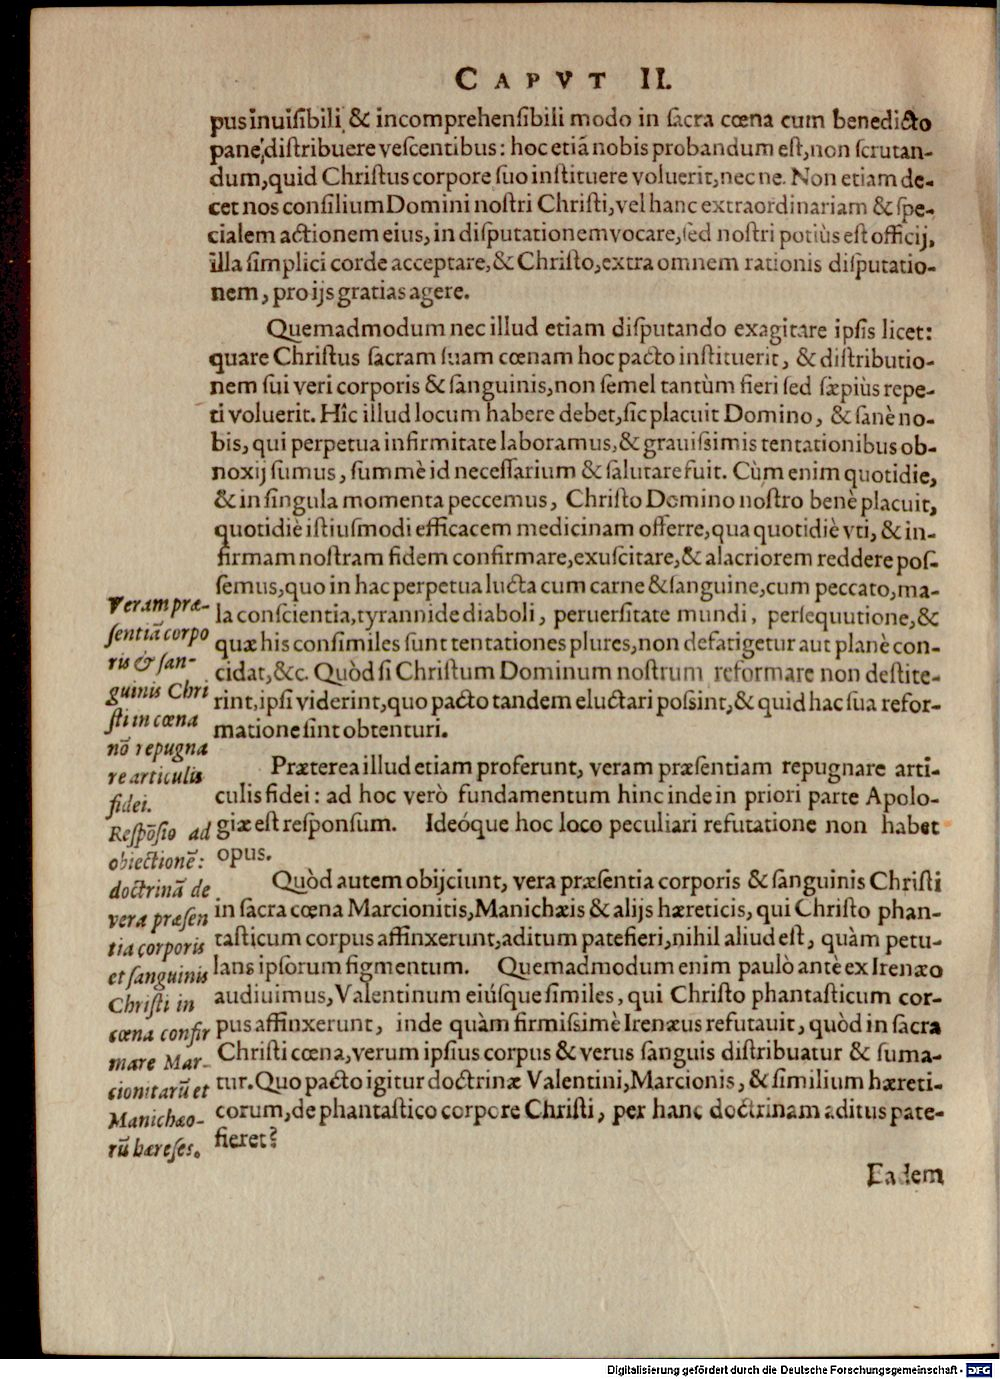 CAPVT II.
pus inuisibili, & incomprehensibili modo in sacra cœna cum benedicto
pane, distribuere vescentibus: hoc etiã nobis probandum est, non scrutan-
dum, quid Christus corpore suo instituere voluerit, nec ne. Non etiam de-
cet nos consilium Domini nostri Christi, vel hanc extraordinariam & spe-
cialem actionem eius, in disputationem vocare, sed nostri potiùs est officij,
illa simplici corde acceptare, & Christo, extra omnem rationis disputatio-
nem, pro ijs gratias agere.
Quemadmodum nec illud etiam disputando exagitare ipsis licet:
quare Christus sacram suam cœnam hoc pacto instituerit, & distributio-
nem sui veri corporis & sanguinis, non semel tantùm fieri sed sæpiùs repe-
ti voluerit. Hîc illud locum habere debet, sic placuit Domino, & sanè no-
bis, qui perpetua infirmitate laboramus, & grauissimis tentationibus ob-
noxij sumus, summè id necessarium & salutare fuit. Cùm enim quotidie,
& in singula momenta peccemus, Christo Domino nostro benè placuit,
quotidiè istiusmodi efficacem medicinam offerre, qua quotidiè vti, & in-
firmam nostram fidem confirmare, exuscitare, & alacriorem reddere pos-
semus, quo in hac perpetua lucta cum carne & sanguine, cum peccato, ma-
la conscientia, tyrannide diaboli, peruersitate mundi, persequutione, &
quæ his consimiles sunt tentationes plures, non defatigetur aut planè con-
cidat, &c. Quòd si Christum Dominum nostrum reformare non destite-
rint, ipsi viderint, quo pacto tandem eluctari possint, & quid hac sua refor-
matione sint obtenturi.
Præterea illud etiam proferunt, veram præsentiam repugnare arti-
culis fidei: ad hoc verò fundamentum hinc inde in priori parte Apolo-
giæ est responsum. Ideóque hoc loco peculiari refutatione non habet
opus.
Quòd autem obijciunt, vera præsentia corporis & sanguinis Christi
in sacra cœna Marcionitis, Manichæis & alijs hæreticis, qui Christo phan-
tasticum corpus affinxerunt, aditum patefieri, nihil aliud est, quàm petu-
lans ipsorum figmentum. Quemadmodum enim paulò antè ex Irenæo
audiuimus, Valentinum eiúsque similes, qui Christo phantasticum cor-
pus affinxerunt, inde quàm firmissimè Irenæus refutauit, quòd in sacra
Christi cœna, verum ipsius corpus & verus sanguis distribuatur & suma-
tur. Quo pacto igitur doctrinæ Valentini, Marcionis, & similium hæreti-
corum, de phantastico corpore Christi, per hanc doctrinam aditus pate-
fieret?
Eadem
Veram præ-
sentiã corpo
ris & san-
guinis Chri
sti in cœna
nõ repugna
re articulis
fidei.
Respõsio ad
obiectionẽ:
doctrinã de
vera præsen
tia corporis
et sanguinis
Christi in
cœna confir
mare Mar-
cionitarũ et
Manichæo-
rũ hæreses.
Digitalisierung gefördert durch die Deutsche Forschungsgemeinschaft - DFG